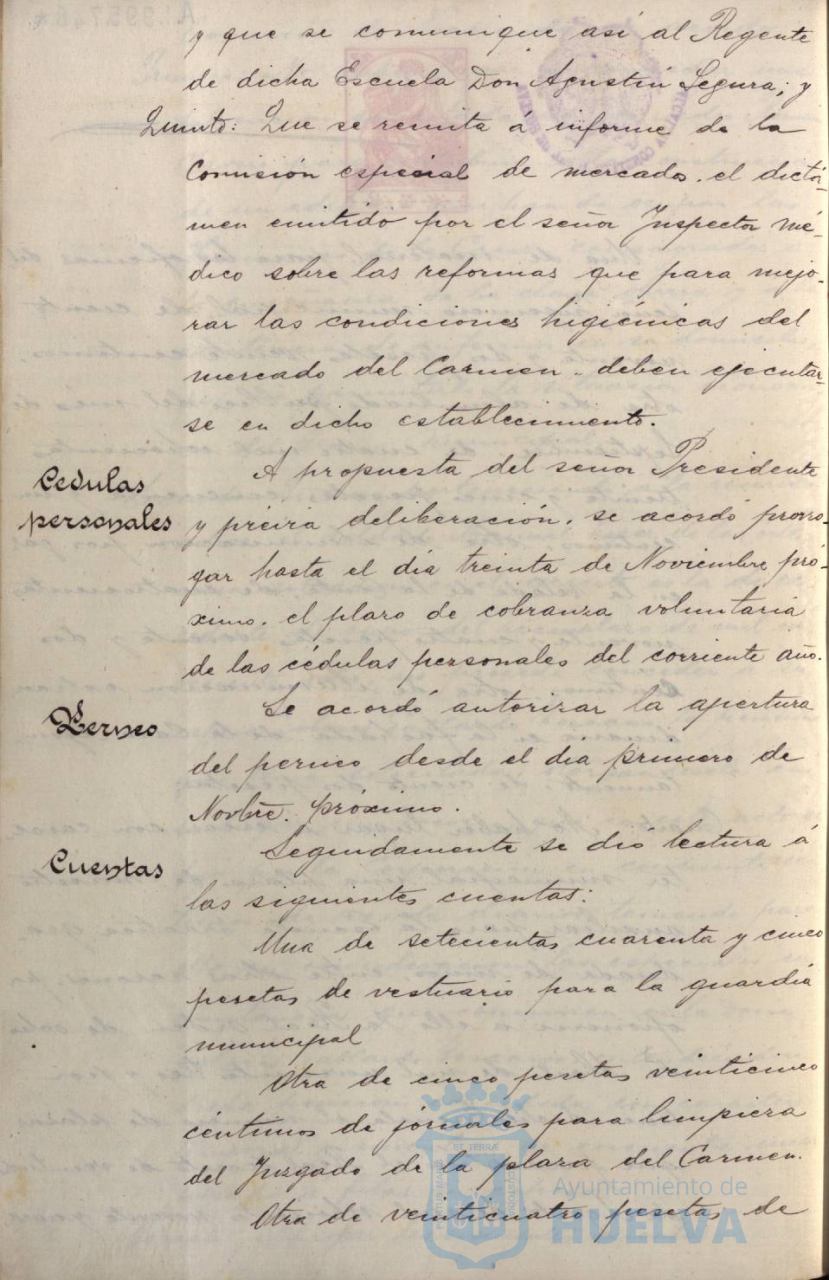 y que se comunique así al Regente
de dicha Escuela Don Agustín Segura; y
Quinto: Que se remita á informe de la
Comisión especial de mercados. el dictá-
men emitido por el señor Inspector mé-
dico sobre las reformas que para mejo-
rar las condiciones higiénicas del
mercado del Carmen. deben ejecutar-
se en dicho establecimiento.
Cedulas
personales
A propuesta del señor Presidente
y prévia deliberación. se acordó prorro-
gar hasta el día treinta de Noviembre pró-
ximo. el plazo de cobranza voluntaria
de las cédulas personales del corriente año.
Perneo
Se acordó autorizar la apertura
del perneo desde el dia primero de
Novbre. próximo.
Cuentas
Seguidamente se dió lectura á
las siguientes cuentas:
Una de setecientas cuarenta y cinco
pesetas de vestuario para la guardia
municipal
Otra de cinco pesetas veinticinco
céntimos de jornales para limpieza
del Juzgado de la plaza del Carmen.
Otra de veinticuatro pesetas de
Ayuntamiento de
HUELVA